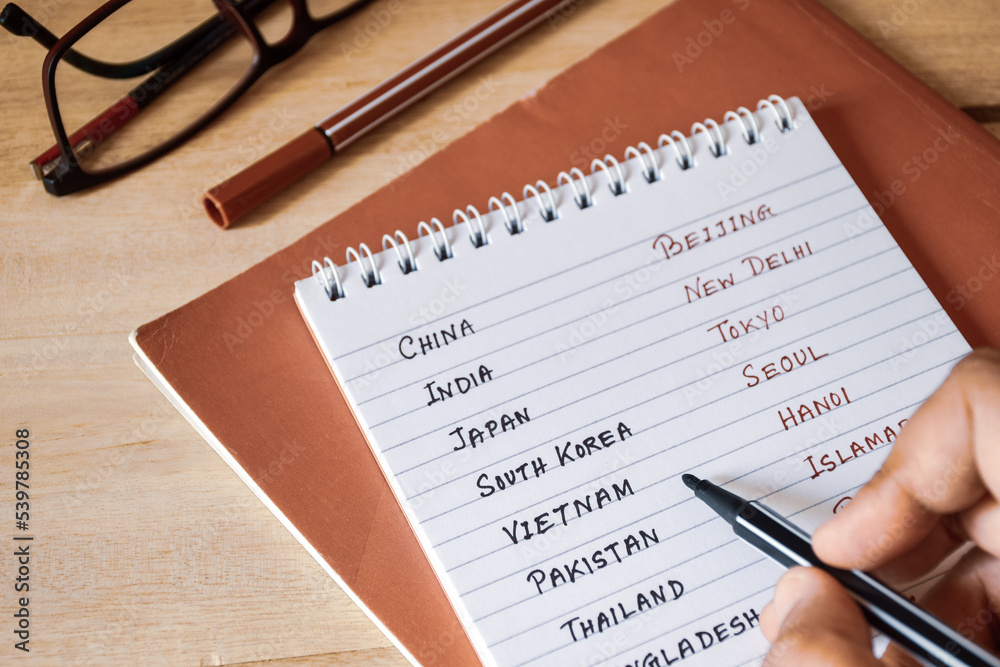 CHINA BEIJING
INDIA NEW DELHI
JAPAN TOKYO
SOUTH KOREA SEOUL
VIETNAM HANOI
PAKISTAN
THAILAND
Adobe Stock | #539785308